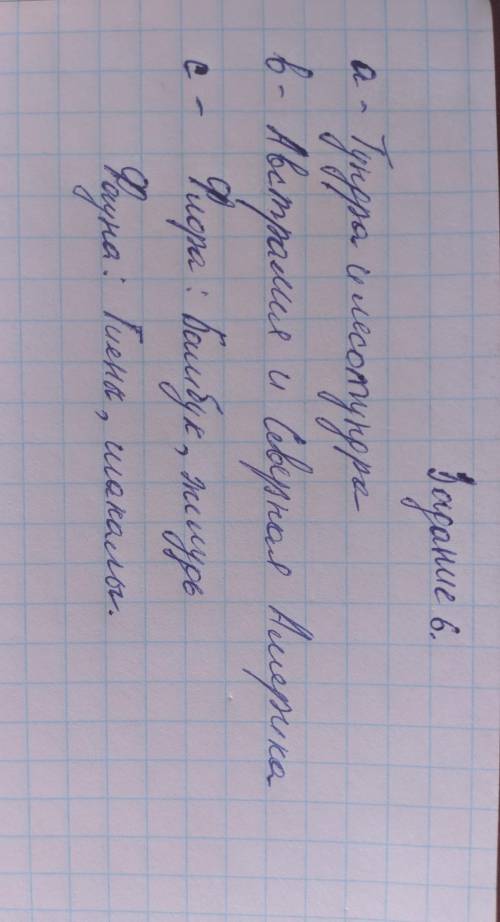 Задание 6.
а - Тундра и лесотундра
в - Австралия и Северная Америка
с - Флора: Бамбук, тигурь
Фауна: Гиены, шакалы.